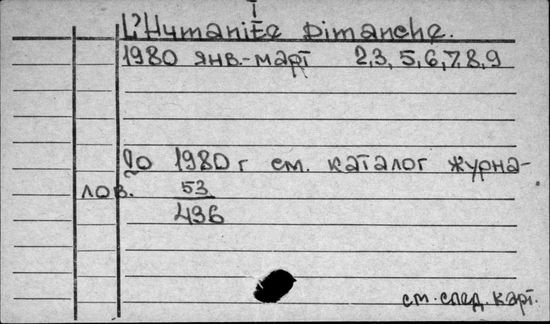 I
L'Humanitée Dimanche.
1980 янв.-март 2,3, 5,6,7,8,9
До 1980 г см. каталог журна-
лов. 53
436
см. след. карт.